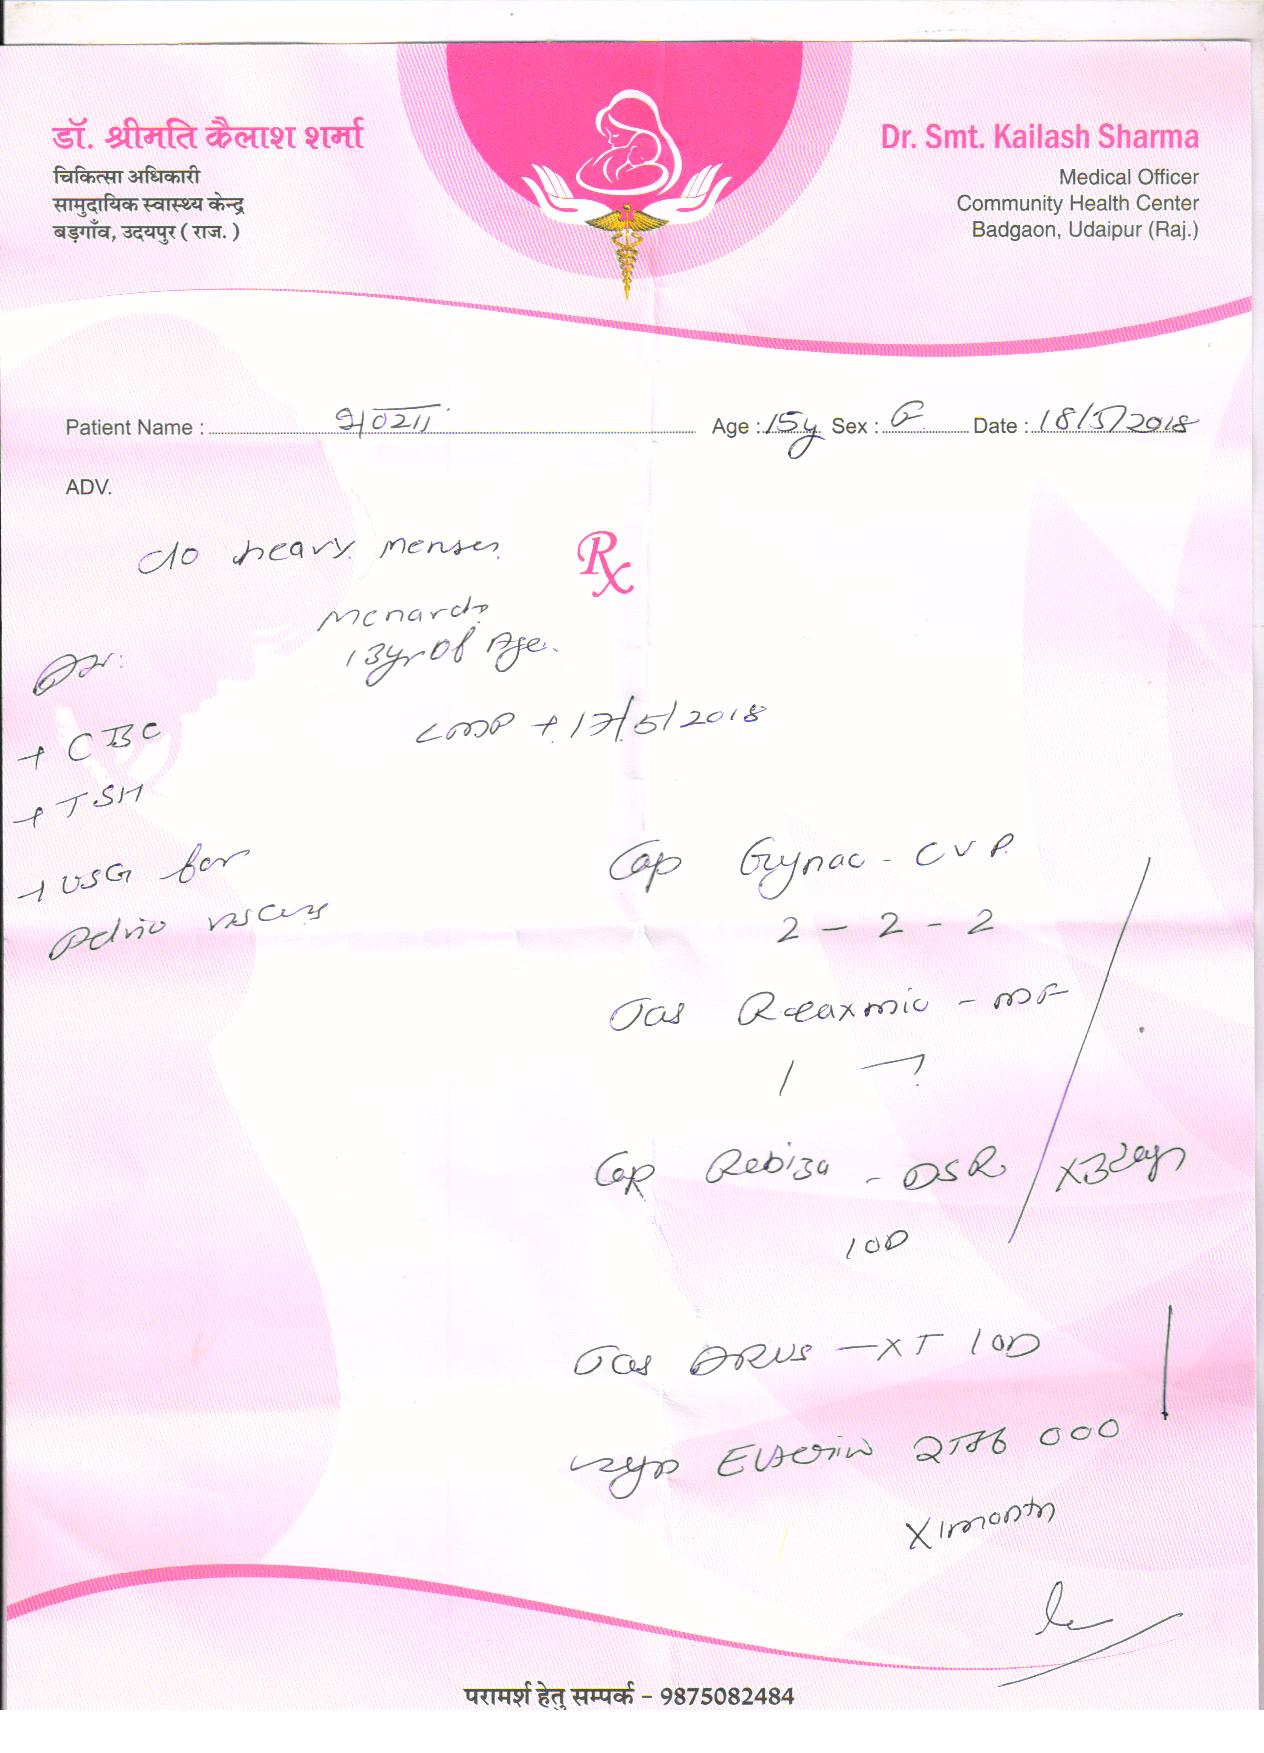 डॉ. श्रीमति कैलाश शर्मा
चिकित्सा अधिकारी
सामुदायिक स्वास्थ्य केन्द्र
बड़गाँव, उदयपुर ( राज. )
Dr. Smt. Kailash Sharma
Medical Officer
Community Health Center
Badgaon, Udaipur (Raj.)
Patient Name : Age : 15y Sex : Date : 18/5/2018
ADV.
C/o heavy menses
Rx
13yr Of Age.
LMP → 17/5/2018
→ CBC
→ TSH
→ USG for
Pelvic
Cap Gynac - CVP
2 - 2 - 2
Tab - MF
1
Cap - DSR
1 OD
X3days
Tab - XT 1 OD
Syp
X 1 month
परामर्श हेतु सम्पर्क - 9875082484